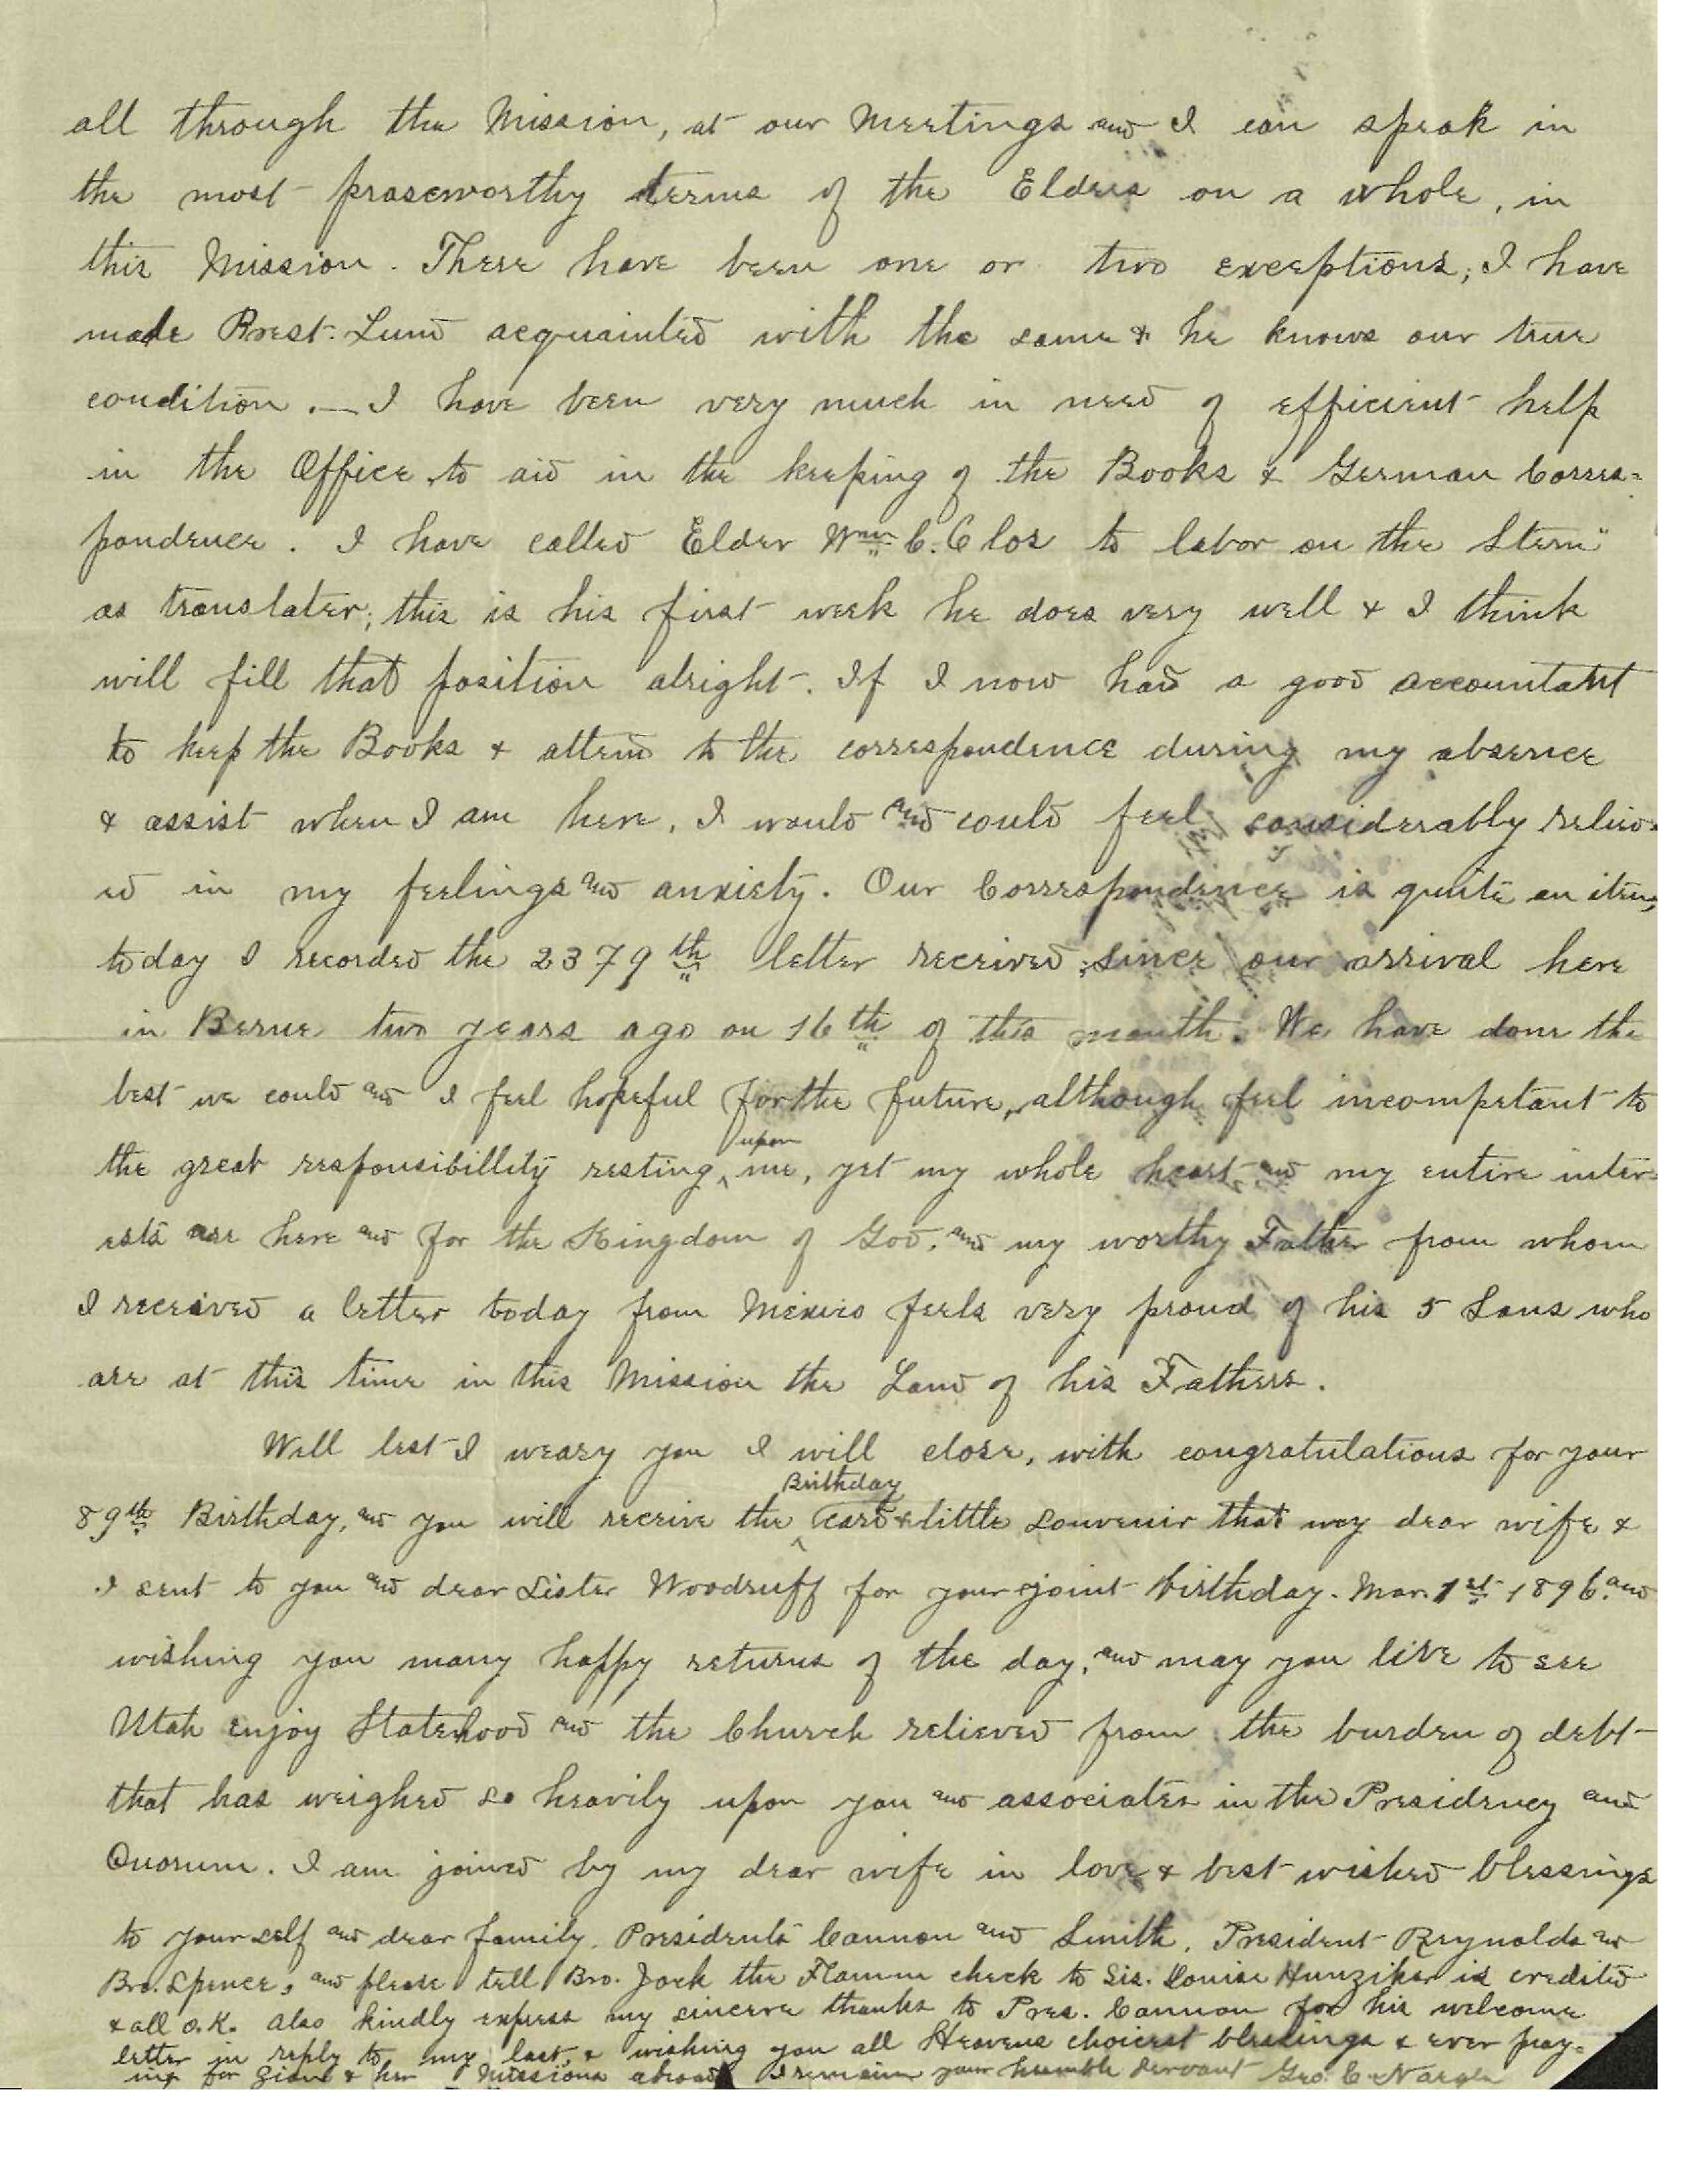 all through the Mission, at our Meetings and I can speak in
the most praseworthy terms of the Elders on a whole, in
this Mission. There have been one or two exceptions, I have
made Prest. Lund acquainted with the same & he knows our true
condition. — I have been very much in need of efficient help
in the Office to aid in the keeping of the Books & German Corres=
pondence. I have called Elder Wm C. Clos to labor on the Stern"
as translater; this is his first week he does very well & I think
will fill that position alright. If I now had a good accountant
to keep the Books & attend to the correspondence during my absence
& assist when I am here, I would and could feel considerably reliev=
ed in my feelings and anxiety. Our Correspondence is quite an item,
today I recorded the 2379th letter received since our arrival here
in Berne two years ago on 16th of this month. We have done the
best we could and I feel hopeful for the future, although feel incompetant to
the great responsibillity resting upon me, yet my whole heart and my entire inter=
ests are here and for the Kingdom of God, and my worthy Father from whom
I received a letter today from Mexico feels very proud of his 5 Sons who
are at this time in this Mission the Land of his Fathers.
Well lest I weary you I will close, with congratulations for your
89th Birthday, and you will receive the Birthday card & little souvenir that my dear wife &
I sent to you and dear Sister Woodruff for your joint birthday. Mar. 1st 1896. and
wishing you many happy returns of the day, and may you live to see
Utah enjoy Statehood and the Church relieved from the burden of debt
that has weighed so heavily upon you and associates in the Presidency and
Quorum. I am joined by my dear wife in love & best wished blessings
to yourself and dear family, Presidents Cannon and Smith, President Reynolds and
Bro. Spence, and please tell Bro. Jack the Flamm check to Sis. Louise Hunziker is credited
& all O.K. Also kindly express my sincere thanks to Pres. Cannon for his welcome
letter in reply to my last, & wishing you all Heavens choicest blessings & ever pray=
ing for Zion & her Missions abroad I remain your humble servant Geo. C. Naegle